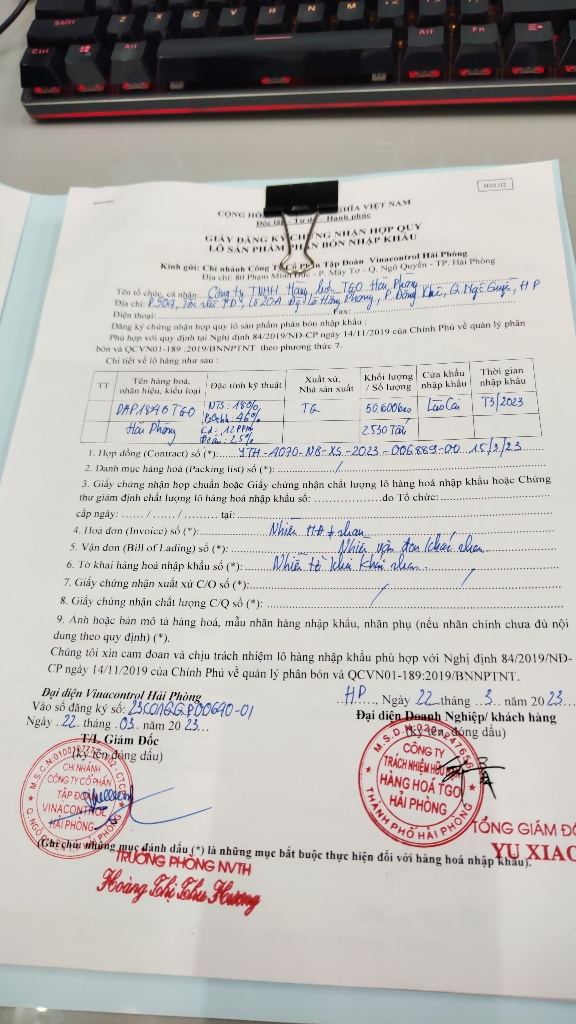 Shift
Z
X
C
V
B
N
M
Ctrl
Alt
Alt
Fn
Ctrl
BM.02
CỘNG HÒA NGHĨA VIỆT NAM
Độc lập - Tự do - Hạnh phúc
GIẤY ĐĂNG KÝ CHỨNG NHẬN HỢP QUY
LÔ SẢN PHẨM PHÂN BÓN NHẬP KHẨU
Kính gửi: Chi nhánh Công Ty Cổ Phần Tập Đoàn Vinacontrol Hải Phòng
Địa chỉ: 80 Phạm Minh Đức - P. Máy Tơ - Q. Ngô Quyền - TP. Hải Phòng
Tên tổ chức, cá nhân: Công ty TNHH Hàng hoá TGO Hải Phòng
Địa chỉ: P.509, Lô 20A Đg Lê Hồng Phong, P. Đông Khê, Q. Ngô Quyền, HP
Điện thoại: Fax:
Đăng ký chứng nhận hợp quy lô sản phẩm phân bón nhập khẩu :
Phù hợp với quy định tại Nghị định 84/2019/NĐ-CP ngày 14/11/2019 của Chính Phủ về quản lý phân
bón và QCVN01-189 :2019/BNNPTNT theo phương thức 7.
Chi tiết về lô hàng như sau :
TT Tên hàng hoá, nhãn hiệu, kiểu loại Đặc tính kỹ thuật Xuất xứ, Nhà sản xuất Khối lượng / Số lượng Cửa khẩu nhập khẩu Thời gian nhập khẩu
DAP 1846 TGO NTS: 18% TQ 50.600bao Lào Cai T3/2023
P2O5hh: 46%
Hải Phòng Cd: 12PPM 2530 Tấn
Độ ẩm: 2,5%
1. Hợp đồng (Contract) số (*): YTH-4070-NB-XS-2023-006889-00 15/3/23
2. Danh mục hàng hoá (Packing list) số (*): /
3. Giấy chứng nhận hợp chuẩn hoặc Giấy chứng nhận chất lượng lô hàng hoá nhập khẩu hoặc Chứng
thư giám định chất lượng lô hàng hoá nhập khẩu số: do Tổ chức:
cấp ngày: / / tại:
4. Hoá đơn (Invoice) số (*): Nhiều HĐ # nhau
5. Vận đơn (Bill of Lading) số (*): Nhiều vận đơn khác nhau
6. Tờ khai hàng hoá nhập khẩu số (*): Nhiều tờ khai khác nhau.
7. Giấy chứng nhận xuất xứ C/O số (*): /
8. Giấy chứng nhận chất lượng C/Q số (*): /
9. Ảnh hoặc bản mô tả hàng hoá, mẫu nhãn hàng nhập khẩu, nhãn phụ (nếu nhãn chính chưa đủ nội
dung theo quy định) (*).
Chúng tôi xin cam đoan và chịu trách nhiệm lô hàng nhập khẩu phù hợp với Nghị định 84/2019/NĐ-
CP ngày 14/11/2019 của Chính Phủ về quản lý phân bón và QCVN01-189:2019/BNNPTNT.
HP, Ngày 22 tháng 3 năm 2023
Đại diện Vinacontrol Hải Phòng
Vào sổ đăng ký số: 23C01GGP00640-01
Ngày 22 tháng 03 năm 2023
T/L Giám Đốc
(ký tên đóng dấu)
Đại diện Doanh Nghiệp/ khách hàng
(ký tên, đóng dấu)
CHI NHÁNH
CÔNG TY CỔ PHẦN
TẬP ĐOÀN
VINACONTROL
HẢI PHÒNG
CÔNG TY
TRÁCH NHIỆM HỮU
HÀNG HOÁ TGO
HẢI PHÒNG
THÀNH PHỐ HẢI PHÒNG
TỔNG GIÁM ĐỐ
YU XIAO
(Ghi chú: những mục đánh dấu (*) là những mục bắt buộc thực hiện đối với hàng hoá nhập khẩu).
TRƯỞNG PHÒNG NVTH
Hoàng Thị Thu Hương